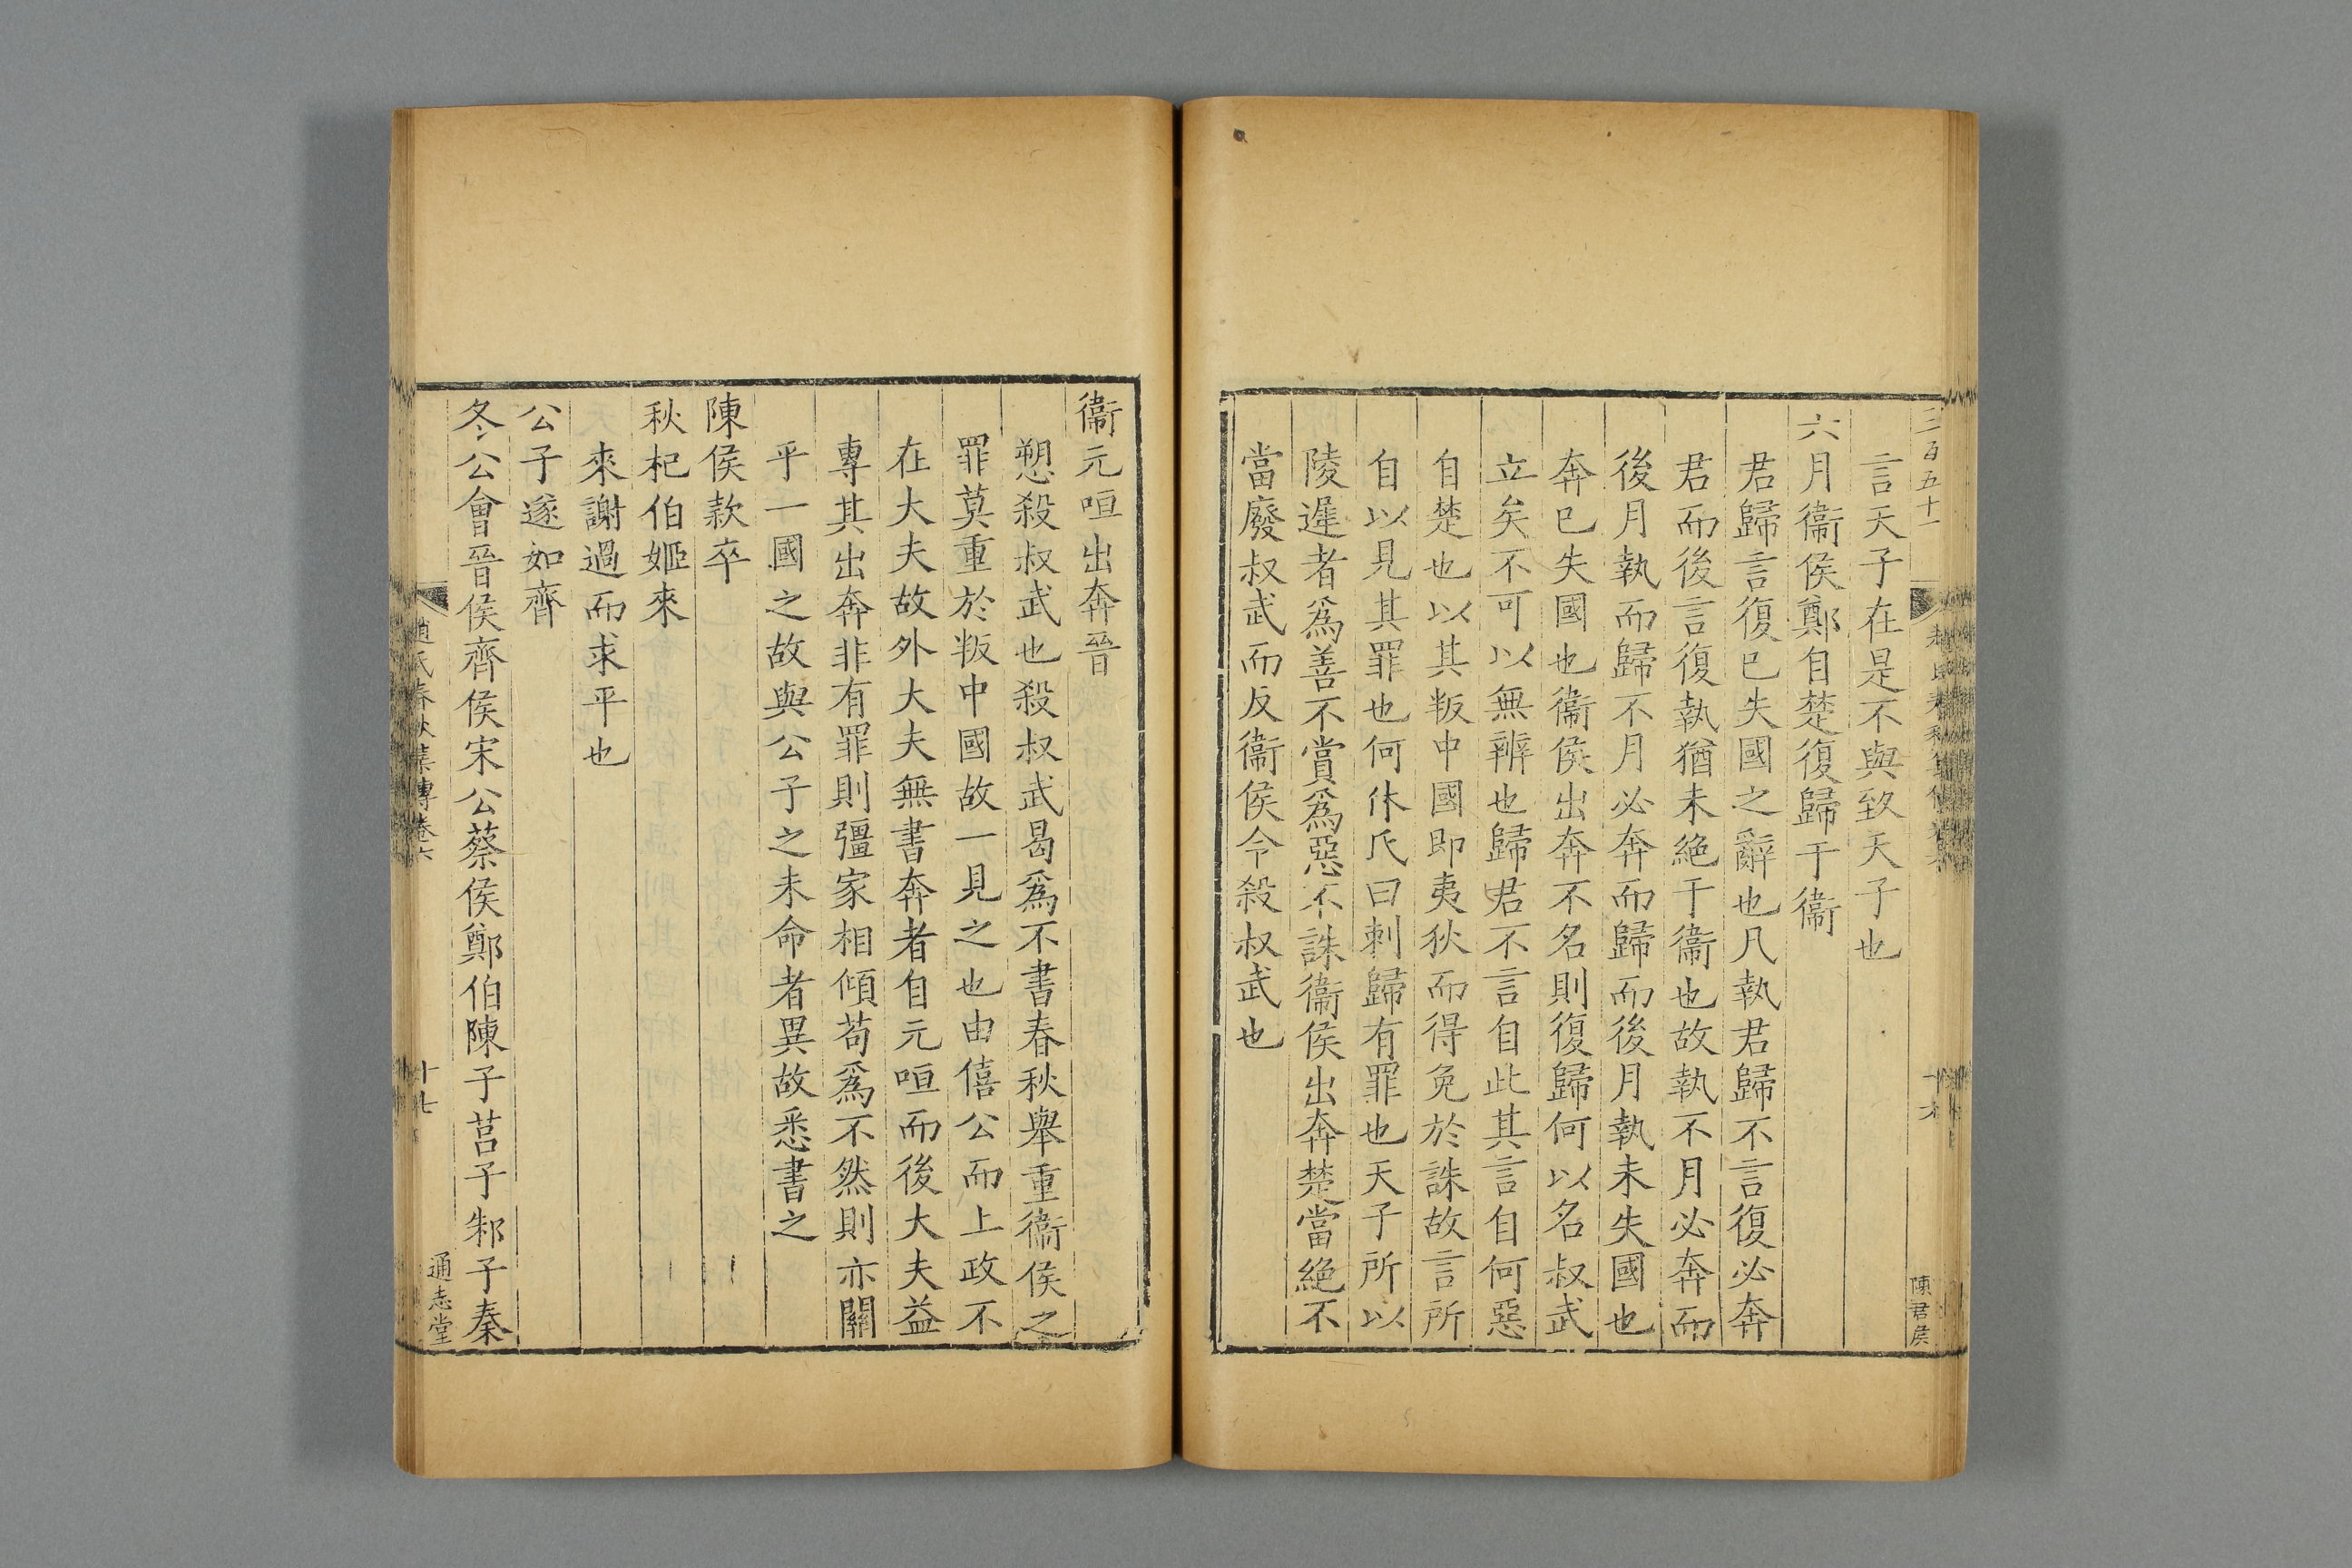 三百五十一
十六
陳君侯
言天子在是不與致天子也
六月衞侯鄭自楚復歸于衞
君歸言復已失國之辭也凡執君歸不言復必奔
君而後言復執猶未絶于衞也故執不月必奔而
後月執而歸不月必奔而歸而後月執未失國也
奔已失國也衞侯出奔不名則復歸何以名叔武
立矣不可以無辨也歸君不言自此其言自何惡
自楚也以其叛中國即夷狄而得免於誅故言所
自以見其罪也何休氏曰刺歸有罪也天子所以
陵遲者爲善不賞爲惡不誅衞侯出奔楚當絶不
當廢叔武而反衞侯令殺叔武也
衞元咺出奔晉
愬殺叔武也殺叔武曷爲不書春秋舉重衞侯之
罪莫重於叛中國故一見之也由僖公而上政不
在大夫故外大夫無書奔者自元咺而後大夫益
專其出奔非有罪則彊家相傾苟爲不然則亦關
乎一國之故與公子之未命者異故悉書之
陳侯款卒
秋杞伯姬來
來謝過而求平也
公子遂如齊
冬公會晉侯齊侯宋公蔡侯鄭伯陳子莒子邾子秦
趙氏春秋集傳卷六
十七
通志堂